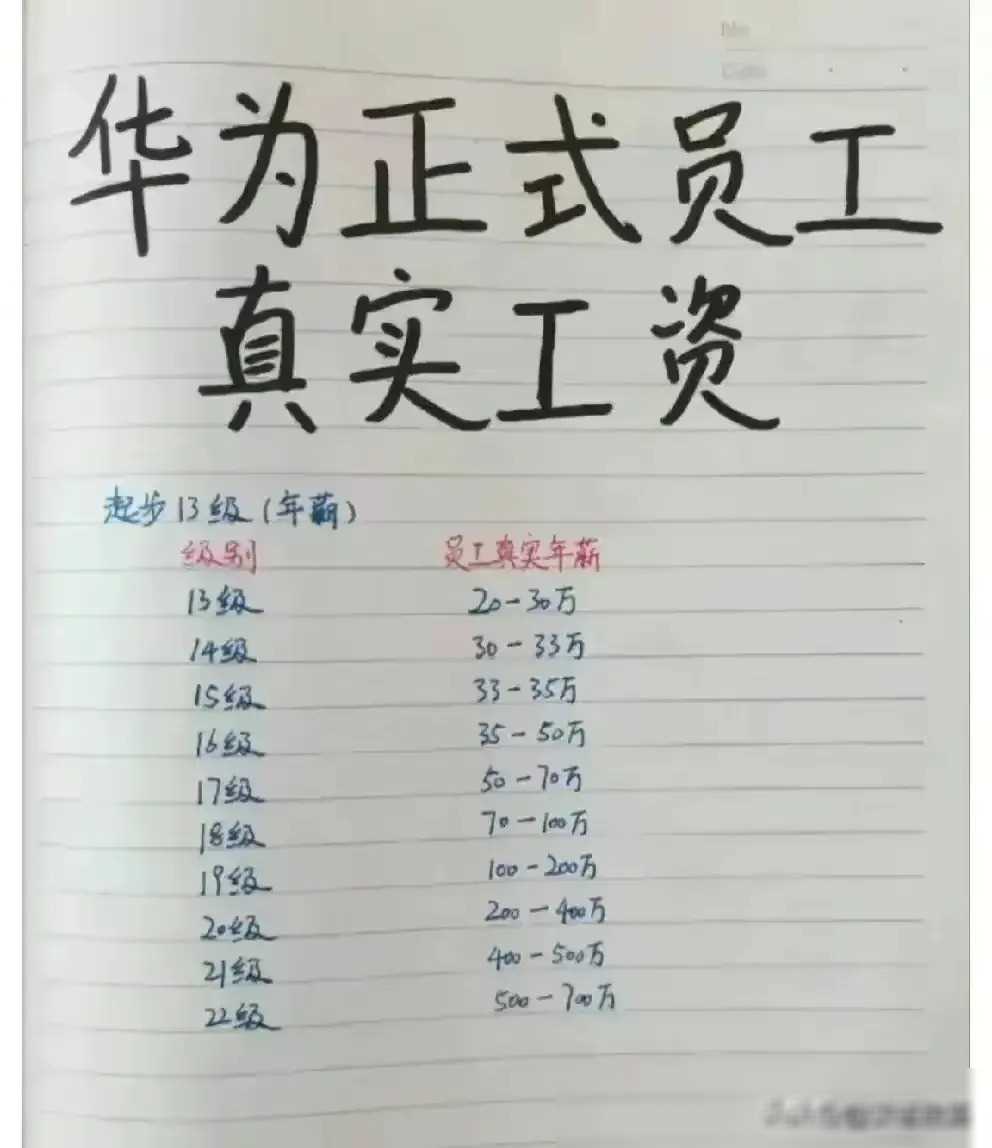 No
Date
华为正式员工
真实工资
起步13级(年薪)
级别 员工真实年薪
13级 20-30万
14级 30-33万
15级 33-35万
16级 35-50万
17级 50-70万
18级 70-100万
19级 100-200万
20级 200-400万
21级 400-500万
22级 500-700万